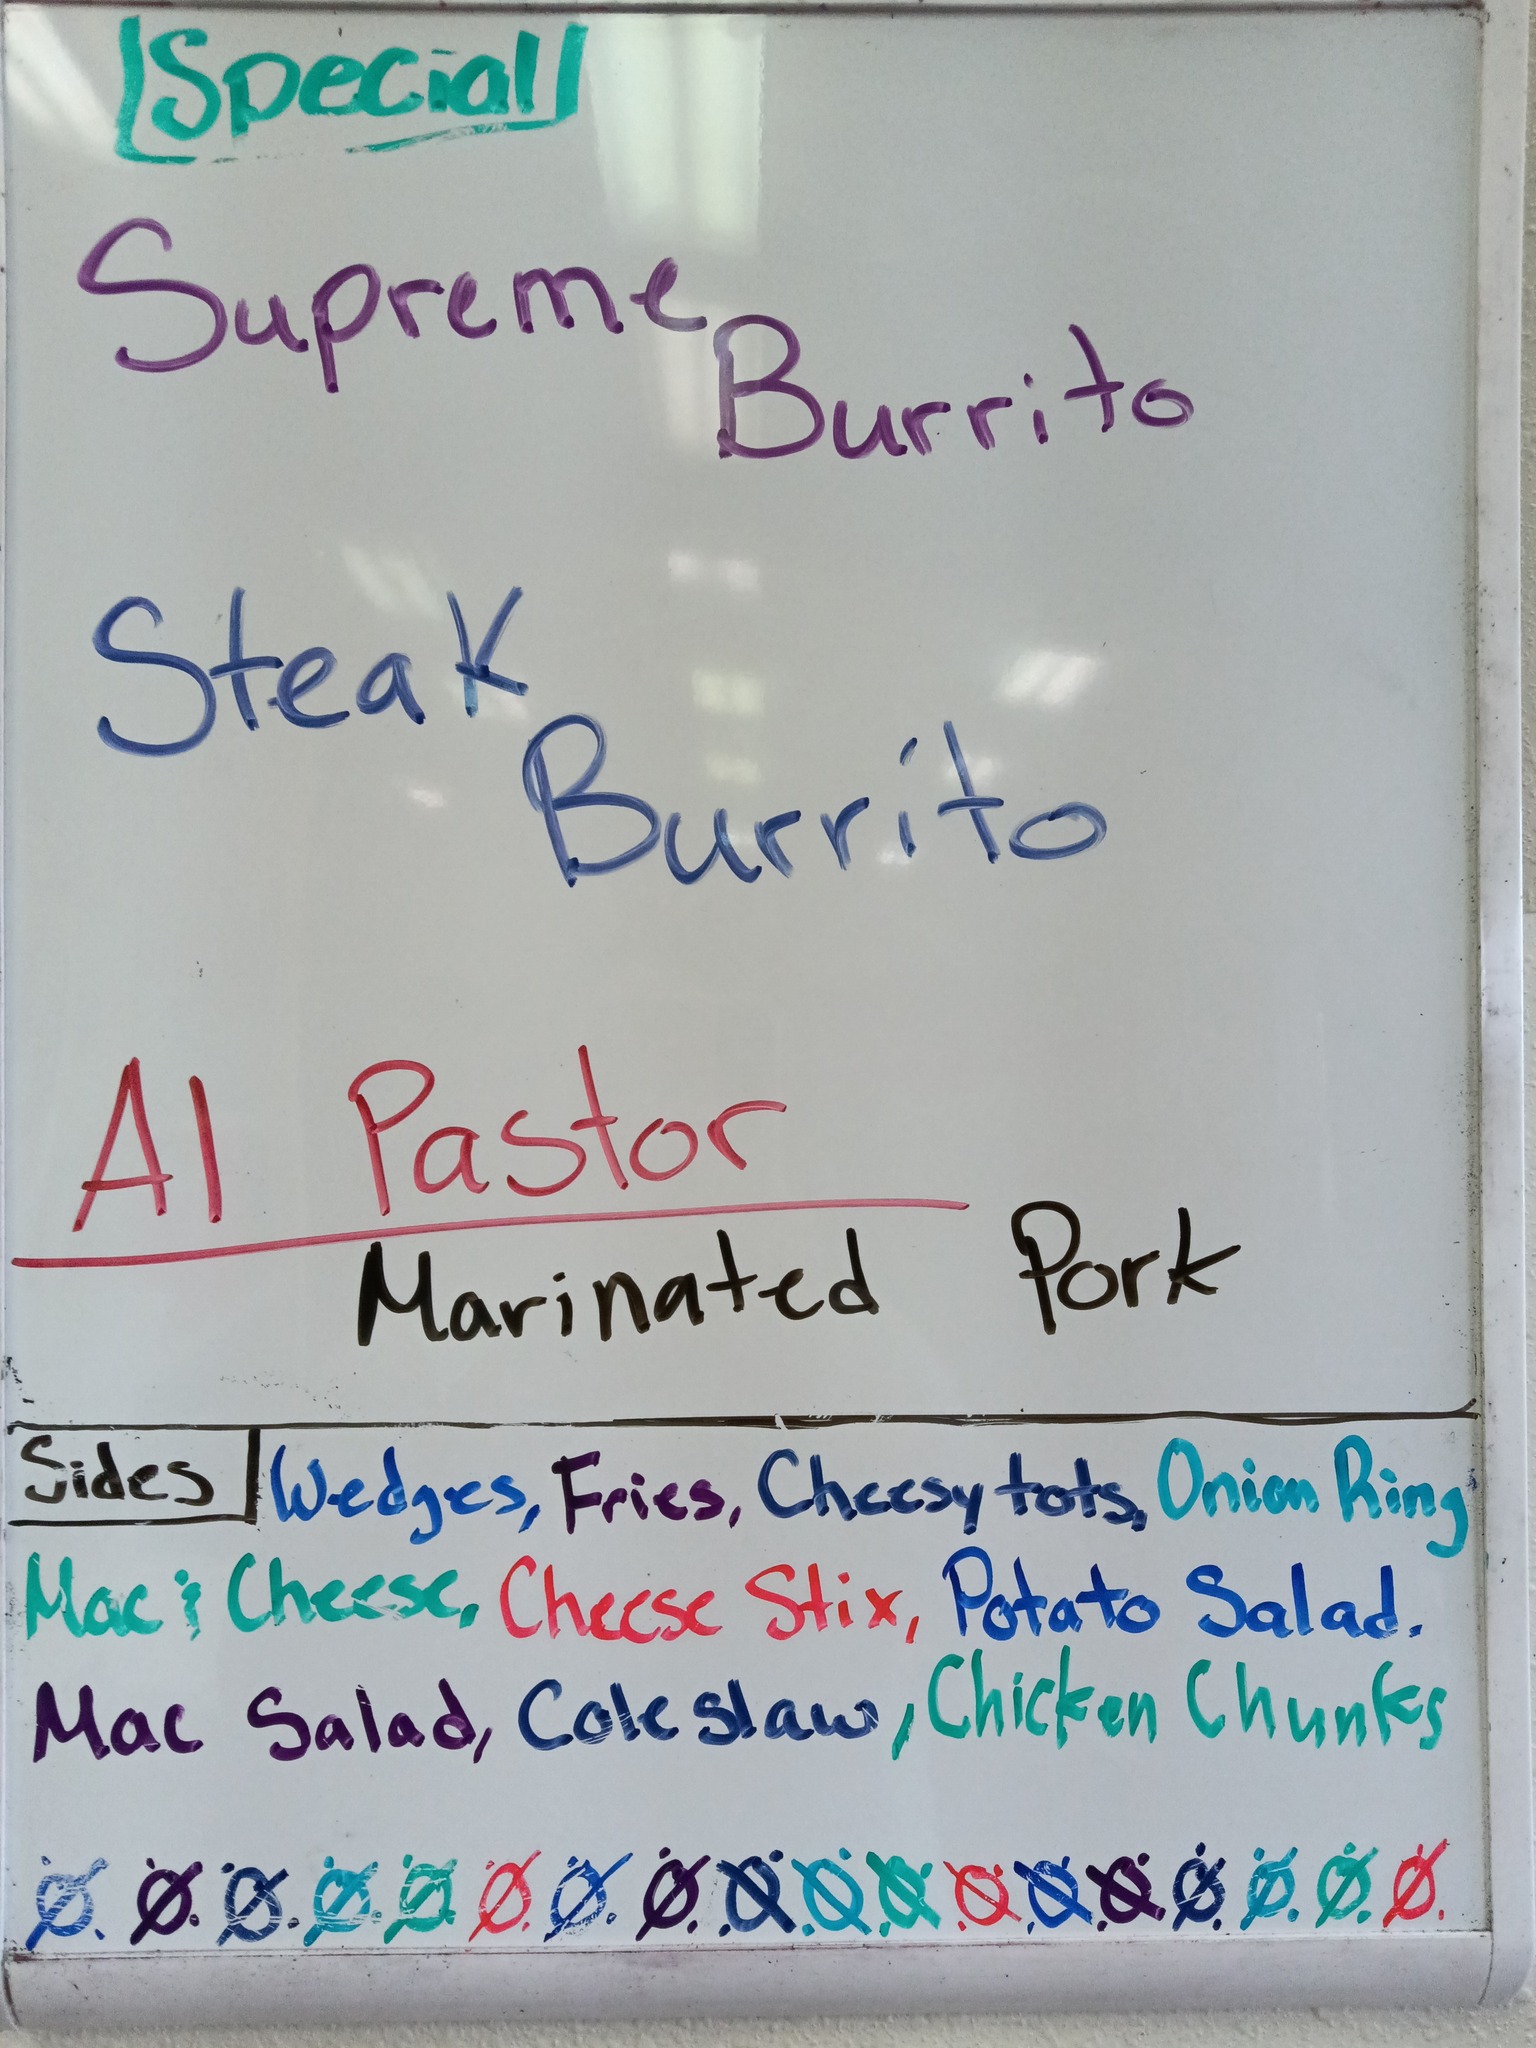 Special
Supreme
Burrito
Steak
Burrito
Al Pastor
Marinated Pork
Sides Wedges, Fries, Cheesy tots, Onion Ring
Mac & Cheese, Cheese Stix, Potato Salad.
Mac Salad, Coleslaw, Chicken Chunks